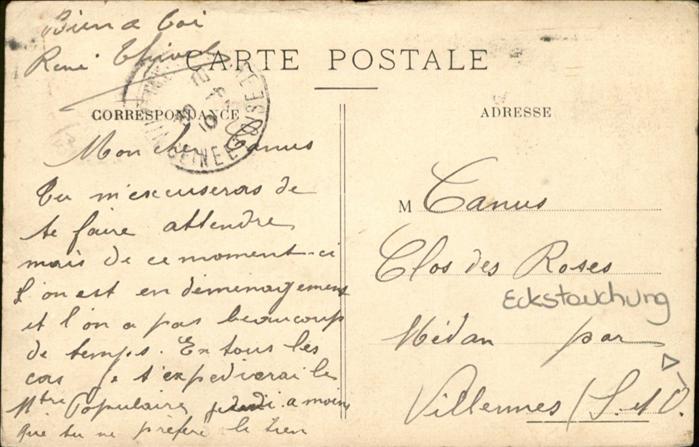 Bien a toi
René
CARTE POSTALE
SEINE ET OISE
CORRESPONDANCE
Mon cher Canus
Tu m'excuseras de
te faire attendre
mais de ce moment-ci
l'on est en déménagement
et l'on a pas beaucoup
de temps. En tous les
cas je t'expedierai le
Mtre Populaire jeudi a moins
que tu ne préfère le tien
ADRESSE
M Canus
Clos des Roses
Eckstauchung
Médan par
Villennes (S. et O.